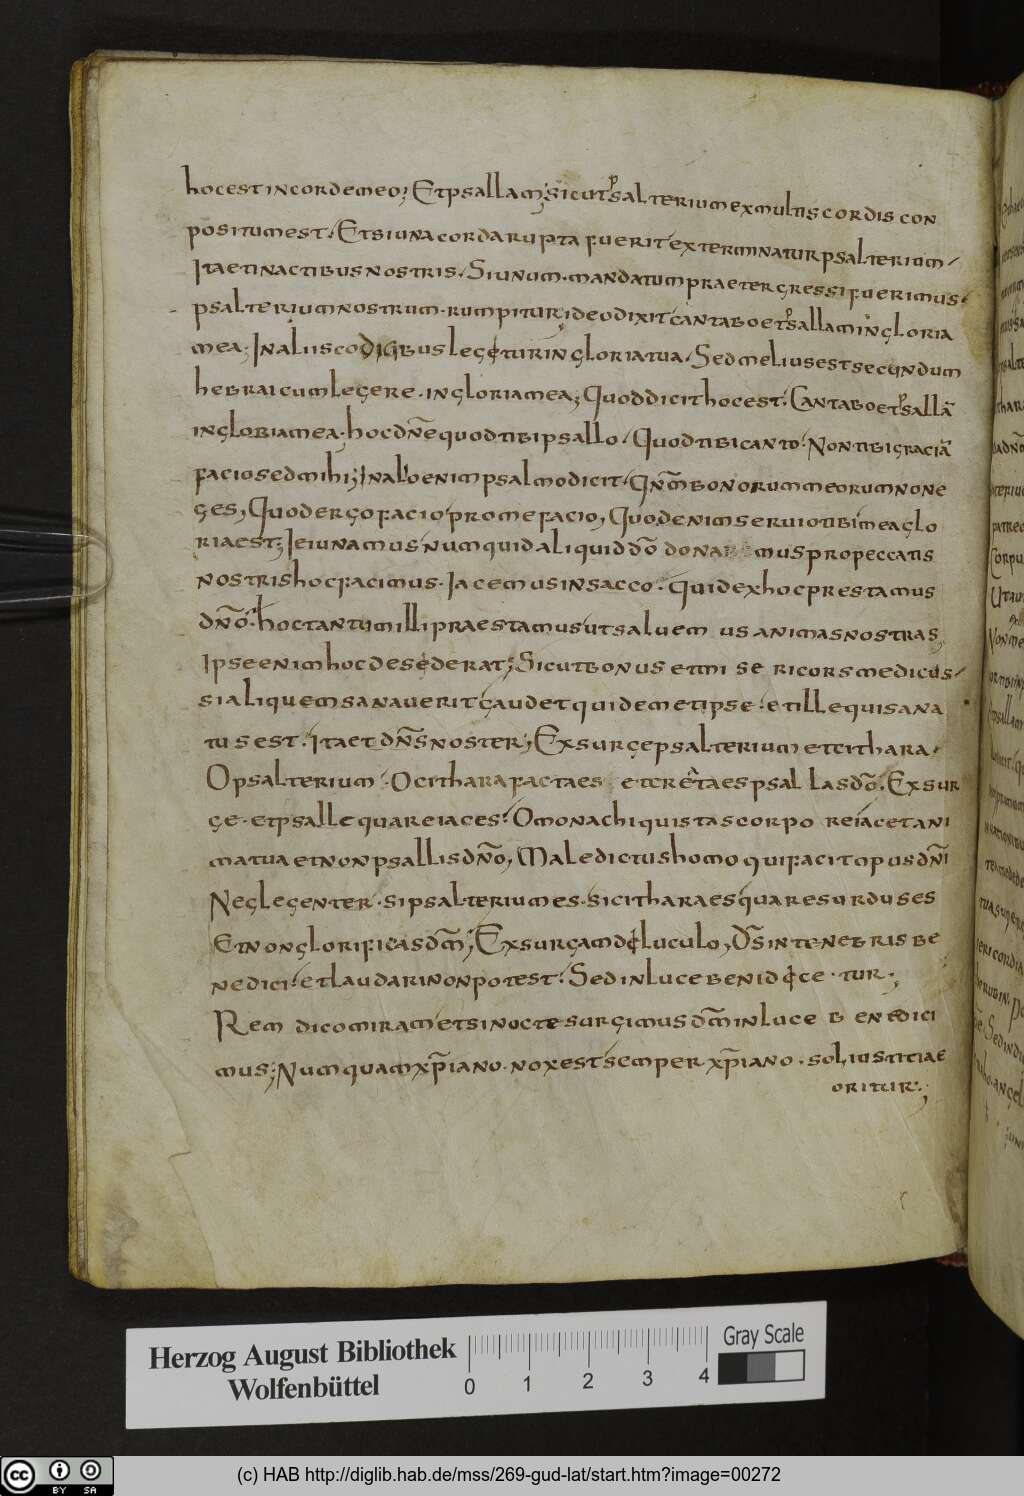 hoc est in corde meo; Et psallam; sicut psalterium ex multis cordis con
positum est. Et si una corda rupta fuerit exterminatur psalterium
Ita et in actibus nostris. Si unum mandatum praetergressi fuerimus
psalterium nostrum rumpitur; ideo dixit cantabo et psallam in gloria
mea; In aliis codicibus legitur in gloria tua. Sed melius est secundum
hebraicum legere in gloria mea; Quod dicit hoc est. Cantabo et psallā
in gloria mea. hoc dn̄e quod tibi psallo. Quod tibi canto. Non tibi graciā
facio sed mihi; In alio enim psalmo dicit. Qn̄m bonorum meorum non e
ges, Quod ergo facio pro me facio, Quod enim servio tibi mea glo
ria est; Ieiunamus numquid aliquid dō donamus pro peccatis
nostris hoc facimus. Iacemus in sacco. quid ex hoc prestamus
dn̄o. hoc tantum illi praestamus ut salvemus animas nostras
Ipse enim hoc desederat; Sicut bonus et misericors medicus
si aliquem sanaverit gaudet quidem et ipse. et ille qui sana
tus est. ita et dn̄s noster; Exsurge psalterium et cithara.
O psalterium. O cithara facta es et creta es psallas dō. Exsur
ge. et psalle quare iaces. O monachi quis tas corpore iacet ani
ma tua et non psallis dn̄o, Maledictus homo qui facit opus dn̄i
Neglegenter. si psalterium es. si cithara es quare surdus es
Et non glorificas dm̄; Exsurgam deluculo, Ds̄ in tenebris be
nedici et laudari non potest. Sed in luce benidicetur.
Rem dico miram etsi nocte surgimus dm̄ in luce benedici
mus; Numquam xp̄iano nox est semper xp̄iano sol iustitiae
oritur;
Herzog August Bibliothek
Wolfenbüttel
0 1 2 3 4
Gray Scale
(c) HAB http://diglib.hab.de/mss/269-gud-lat/start.htm?image=00272
cc BY SA